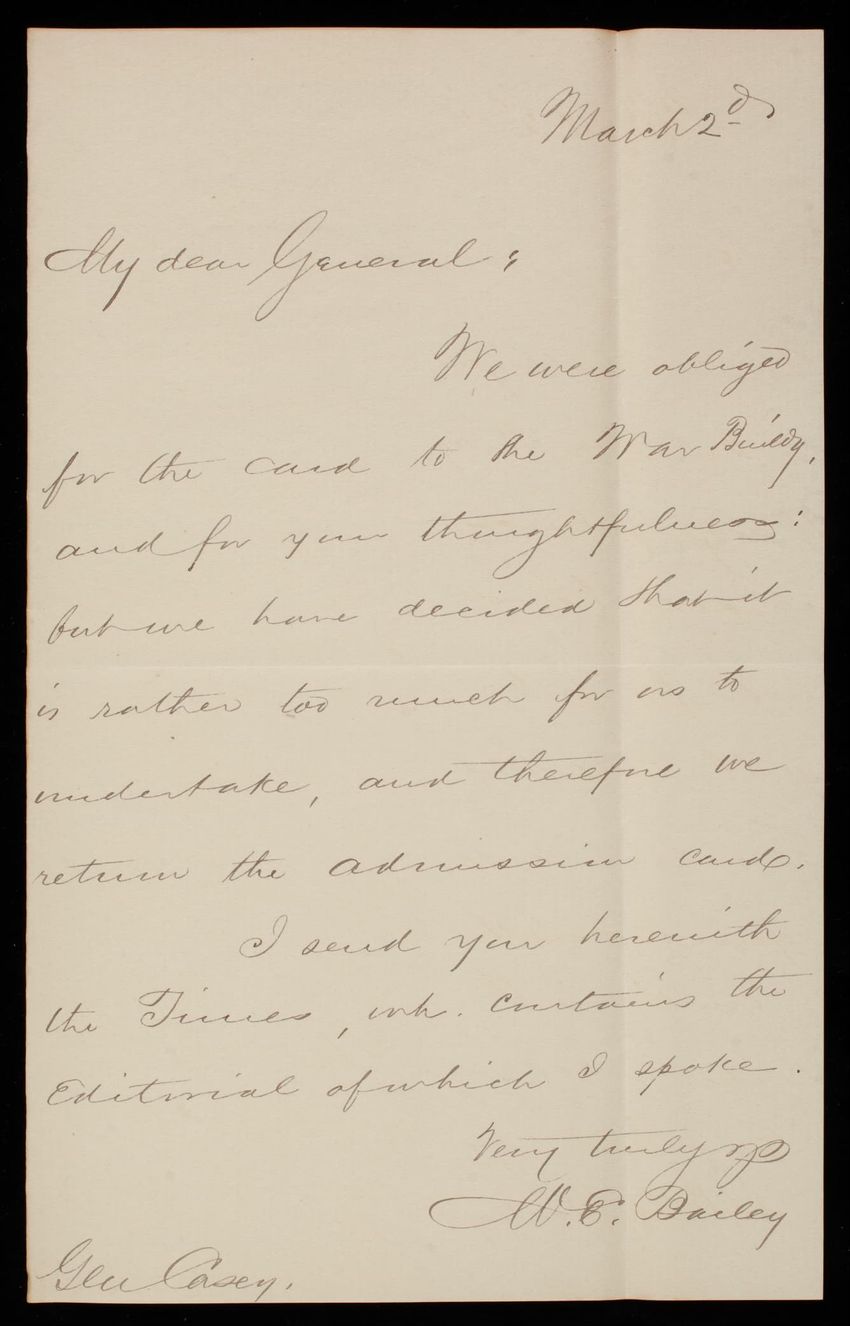 March 2d
My dear General;
We were obliged
for the card to the War Buildg,
and for your thoughtfulness:
but we have decided that it
is rather too much for us to
undertake, and therefore we
return the admission card.
I send you herewith
the Times, wh. contains the
Editorial of which I spoke.
Very truly yrs
W. E. Bailey
Gen Casey.